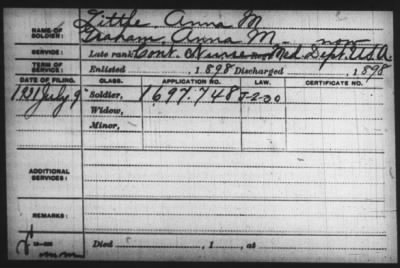 Little, Anna M.
NAME OF SOLDIER: Graham, Anna M. now
SERVICE: Late rank Cont. Nurse Med. Dept. U.S.A.
TERM OF SERVICE: Enlisted 1898 Discharged 1898
DATE OF FILING. CLASS. APPLICATION NO. LAW. CERTIFICATE NO.
1931 July 9 Soldier, 1697.748 J-2-30
Widow,
Minor,
ADDITIONAL SERVICES:
REMARKS:
Died , 1 , at